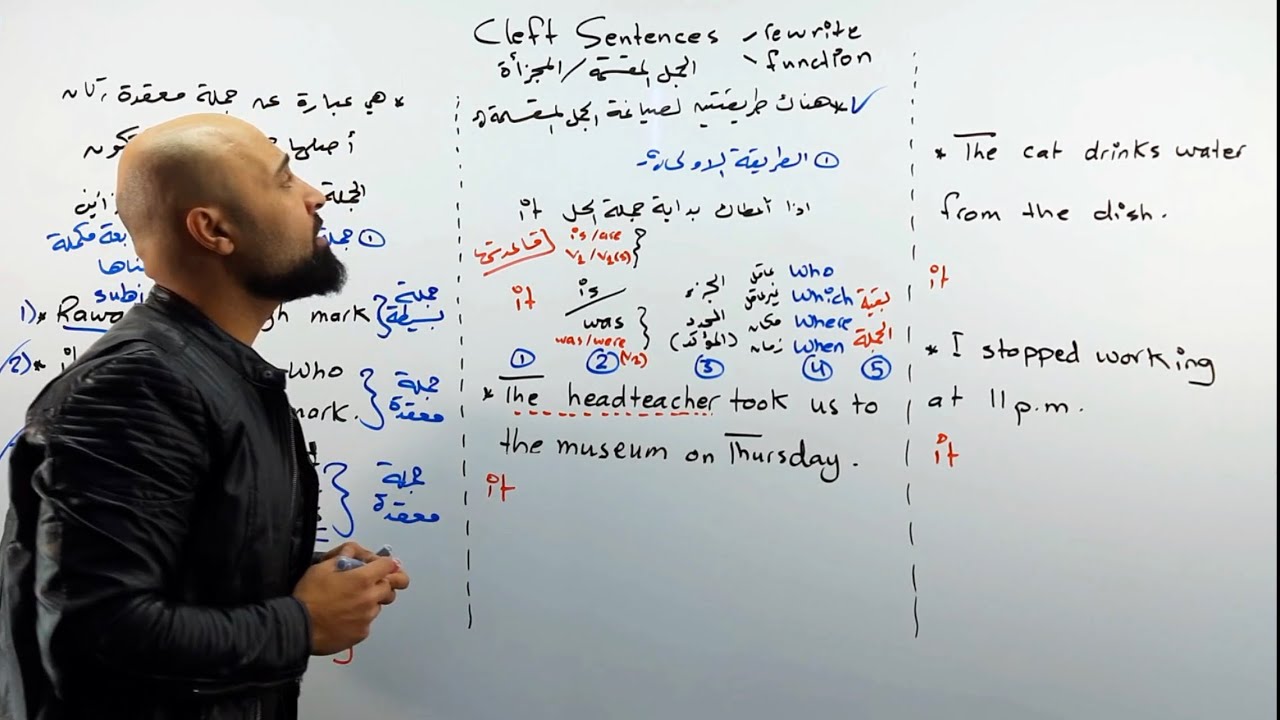 Cleft Sentences
rewrite
function
الجمل المقسمة / المجزأة
* هي عبارة عن جملة معقدة
أصلها
الجملة
① جملة
مكملة
subj
1)*
mark
جملة
بسيطة
2)*
who
mark.
جملة
معقدة
جملة
معقدة
* هناك طريقتين لصياغة الجمل المقسمة
① الطريقة الاولى :-
اذا أعطاك بداية جملة الحل it
قاعدتي
is/are
V1/V1(s)
it
is
was
was/were
(V2)
الجزء
المحدد
(المؤكد)
عاقل who
غير عاقل which
مكان where
زمان when
بقية
الجملة
① ② ③ ④ ⑤
* The headteacher took us to
the museum on Thursday.
it
* The cat drinks water
from the dish.
it
* I stopped working
at 11 p.m.
it